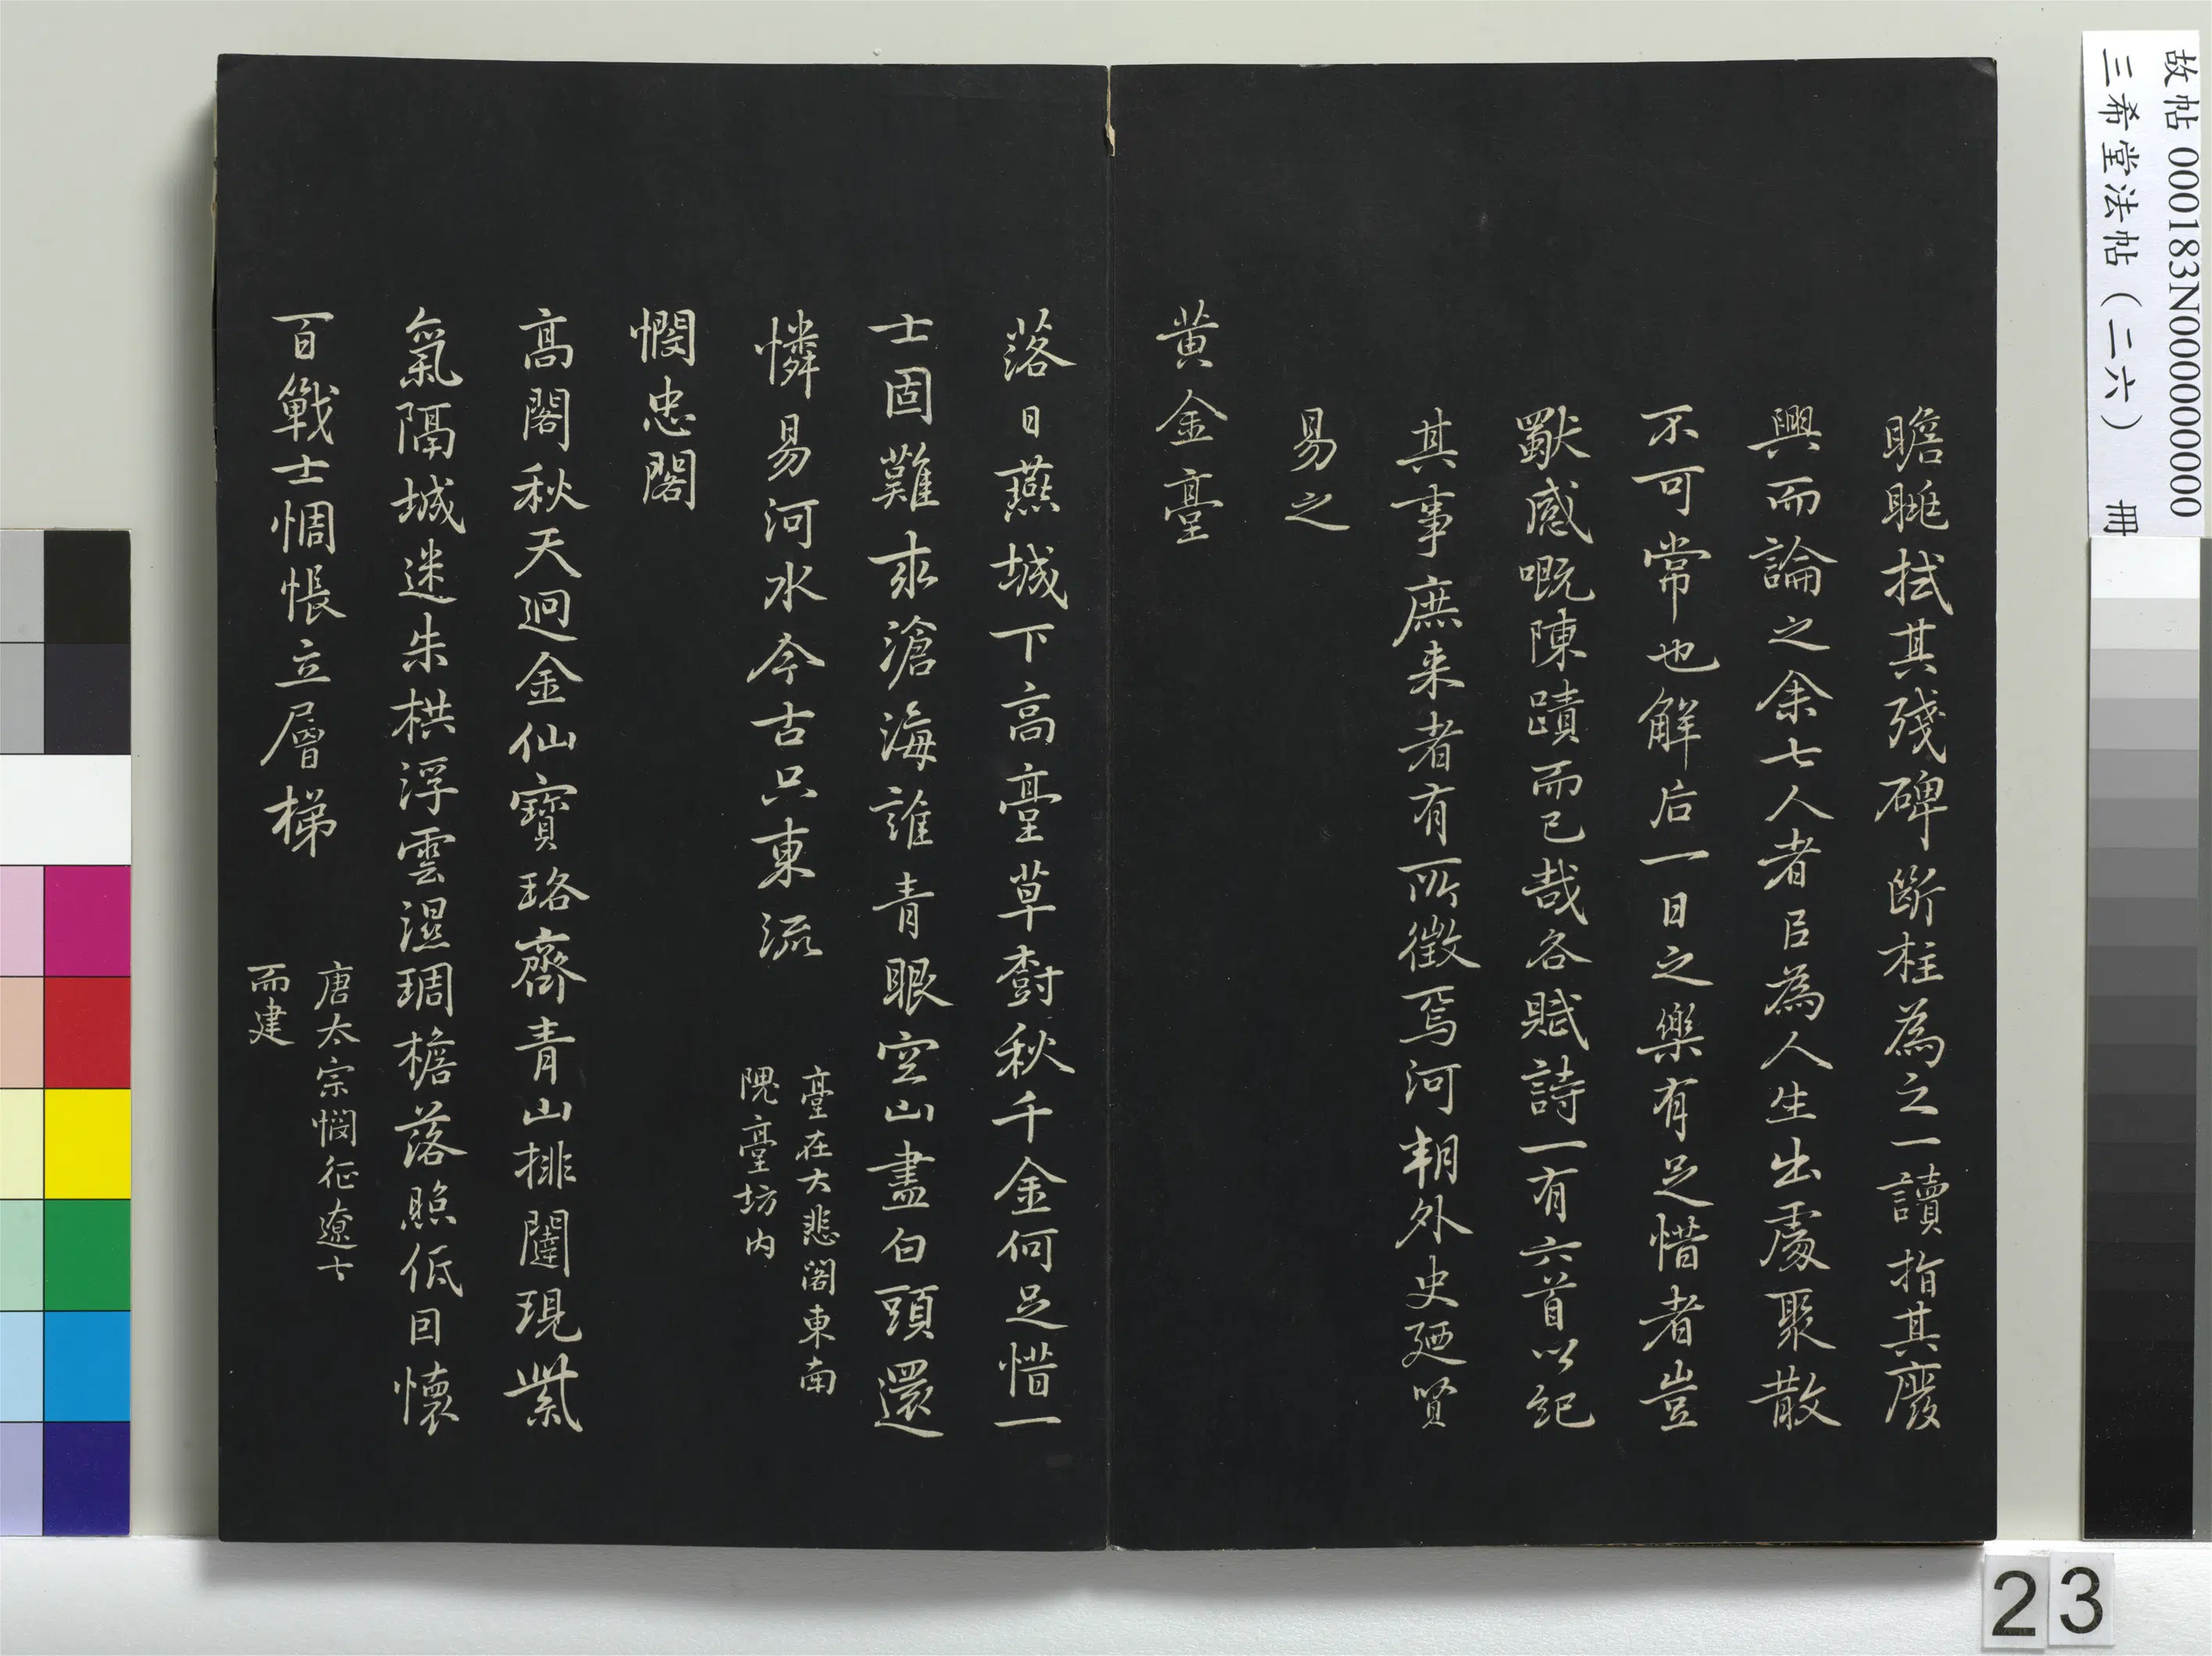 故帖 000183N000000000
三希堂法帖（二六） 冊
瞻眺拭其殘碑斷柱為之一讀指其廢
興而論之余七人者以為人生出處聚散
不可常也解后一日之樂有足惜者豈
獸感嘅陳蹟而已哉各賦詩一有六首以紀
其事庶来者有所徴焉河朔外史廼賢
易之
黄金臺
落日燕城下高臺草樹秋千金何足惜一
士固難求滄海誰青眼空山盡白頭還
憐易河水今古只東流
臺在大悲閣東南
隗臺坊内
憫忠閣
高閣秋天迥金仙寶珞齋青山排闥現紫
氣隔城迷朱栱浮雲濕琱檐落照低因懷
百戰士惆悵立層梯
唐太宗憫征遼士
而建
23